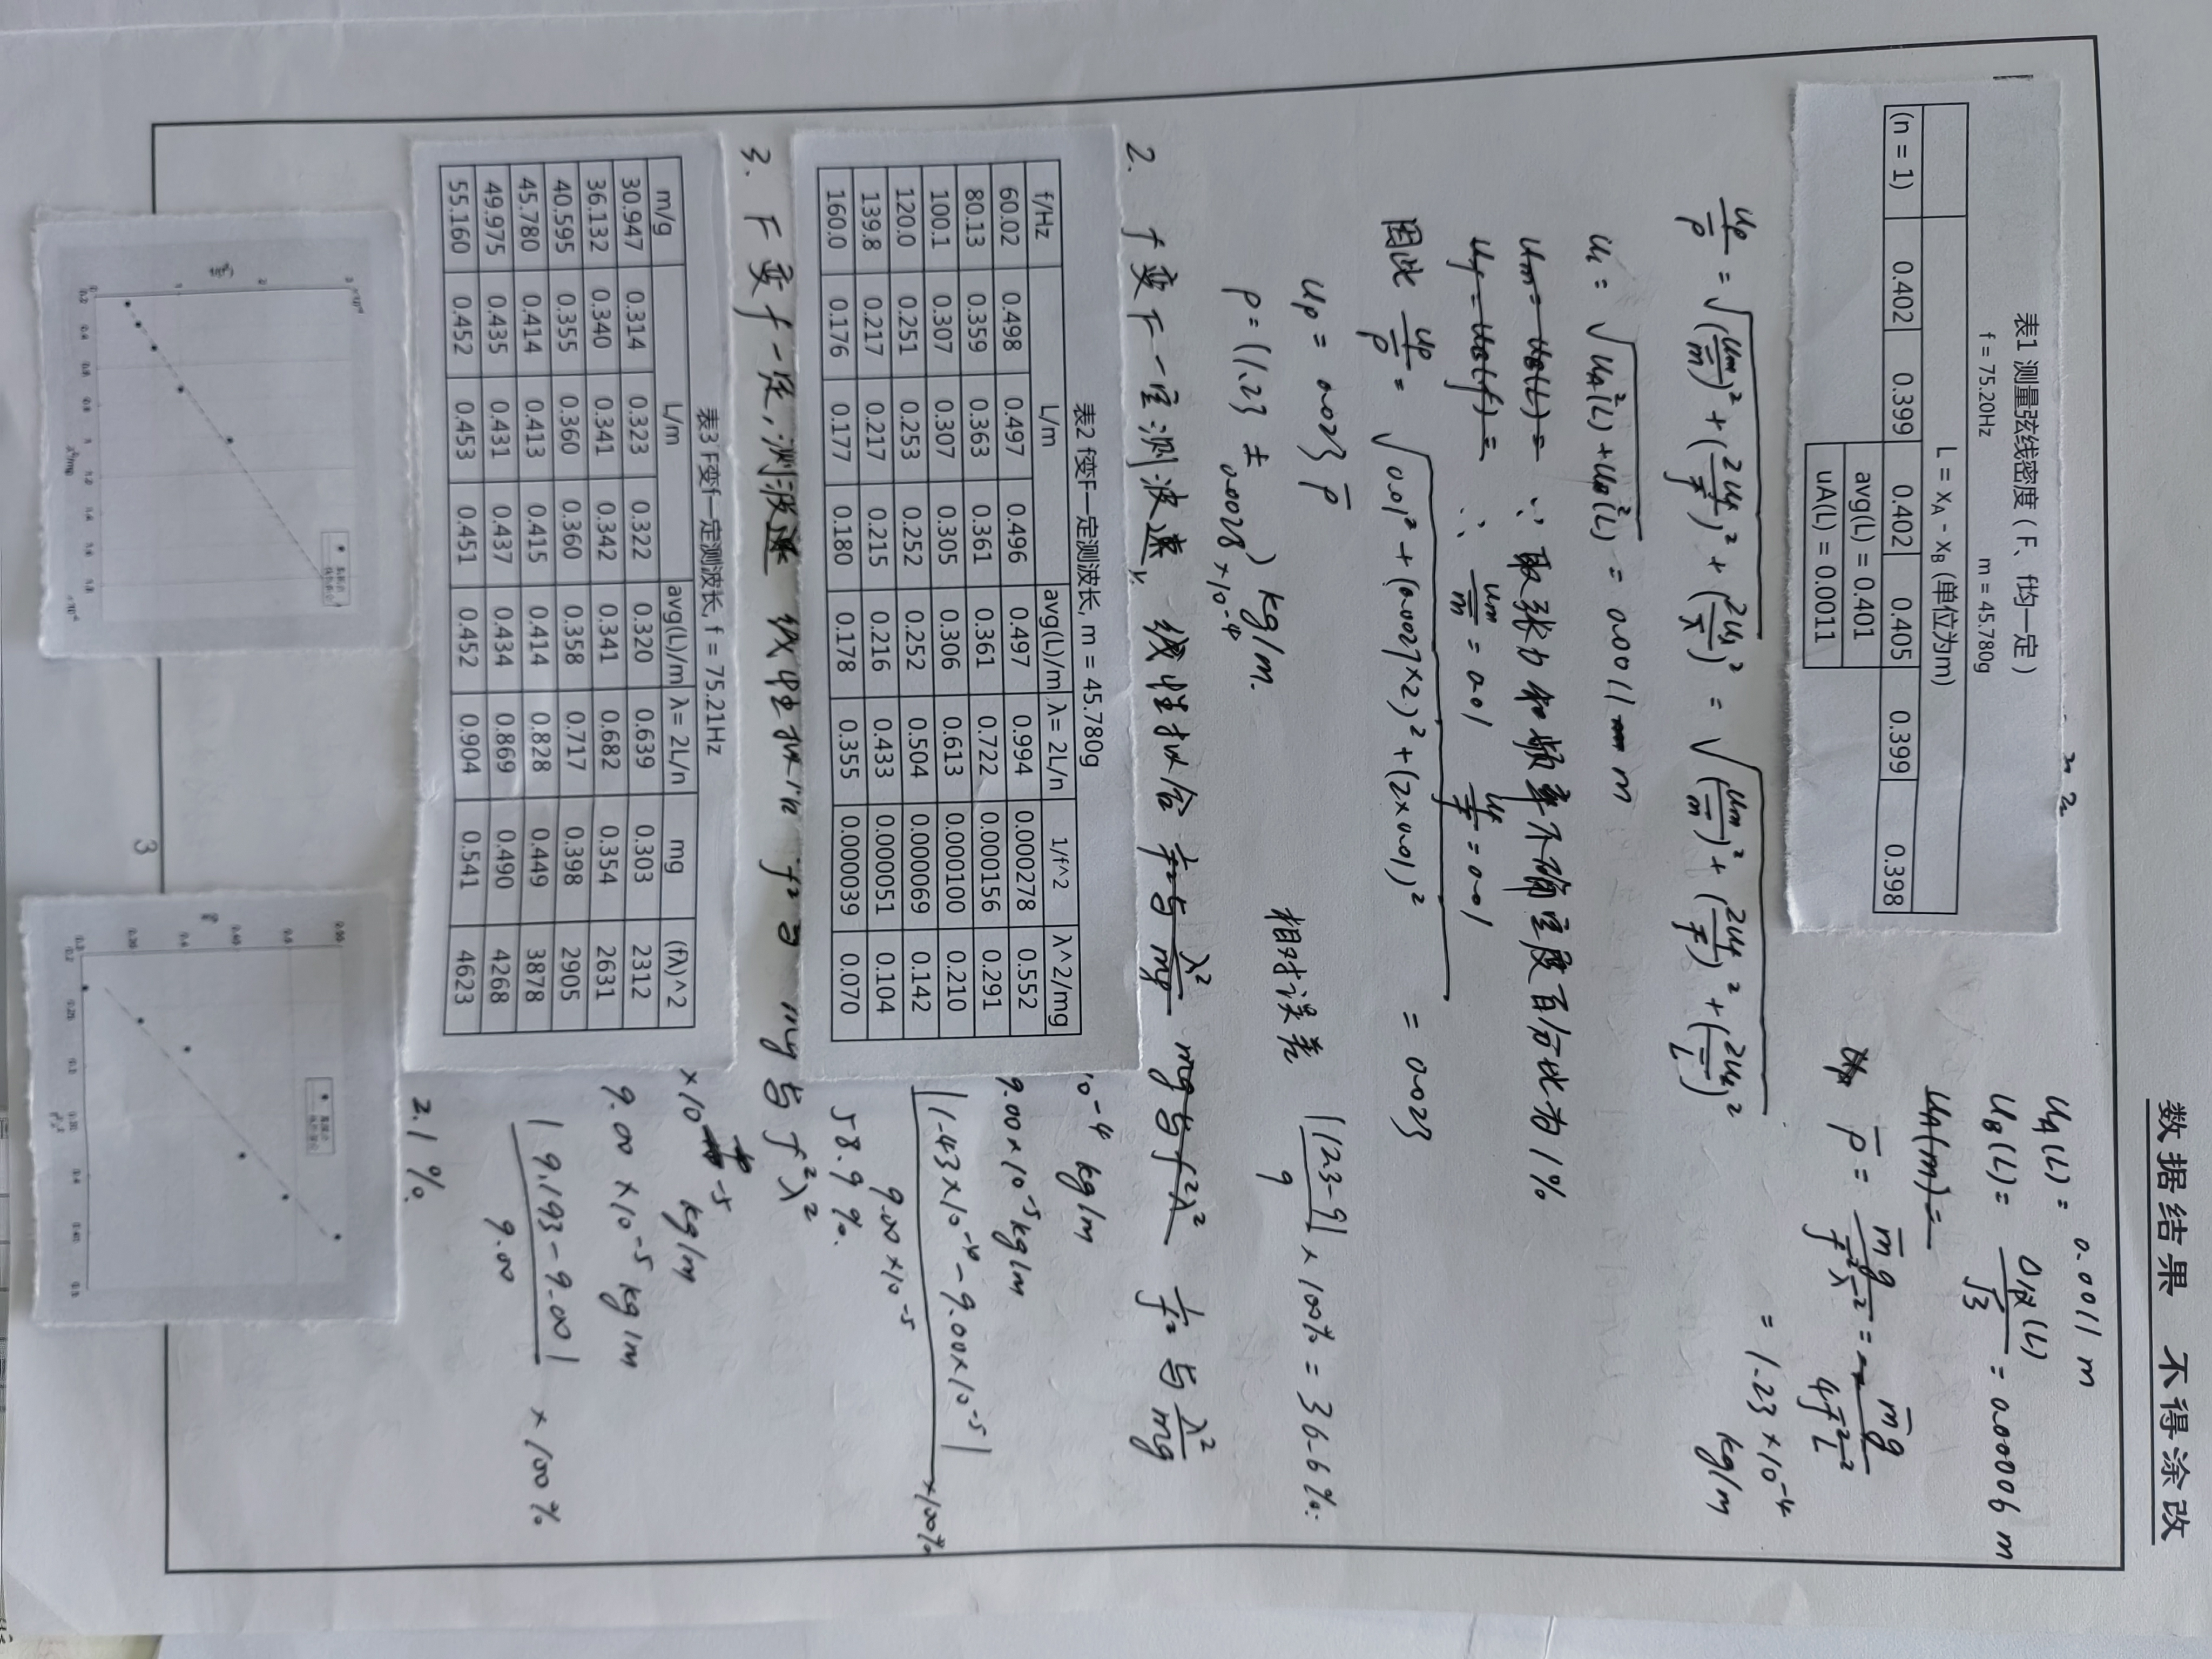 数据结果 不得涂改
表1 测量弦线密度（F、f均一定）
f = 75.20Hz m = 45.780g
L = xA - xB (单位为m)
(n = 1) 0.402 0.399 0.402 0.405 0.399 0.398
avg(L) = 0.401
uA(L) = 0.0011
uA(L) = 0.0011 m
uB(L) = Δ仪(L)/√3 = 0.00006 m
uA(m) =
ρ̄ = m̄g/f̄²λ̄² = m̄g/4f̄²L̄²
= 1.23×10⁻⁴ kg/m
uρ/ρ̄ = √((um/m̄)² + (2uf/f̄)² + (2uλ/λ̄)²) = √((um/m̄)² + (2uf/f̄)² + (2uL/L̄)²)
uL = √(uA²(L) + uB²(L)) = 0.0011 m
um = uB(L) = ∵ 取张力和频率不确定度百分比为1%
uf = uB(f) = ∴ um/m̄ = 0.01 uf/f̄ = 0.01
因此 uρ/ρ̄ = √(0.01² + (0.0027×2)² + (2×0.01)²) = 0.023
uρ = 0.023 ρ̄
ρ = (1.23 ± 0.0028)×10⁻⁴ kg/m.
相对误差 |12.3-9|/9 × 100% = 36.6%.
2. f变F一定测波速, 线性拟合 1/f²与λ²/mg mg与f²λ² 1/f²与λ²/mg
表2 f变F一定测波长, m = 45.780g
f/Hz L/m avg(L)/m λ= 2L/n 1/f^2 λ^2/mg
60.02 0.498 0.497 0.496 0.497 0.994 0.000278 0.552
80.13 0.359 0.363 0.361 0.361 0.722 0.000156 0.291
100.1 0.307 0.307 0.305 0.306 0.613 0.000100 0.210
120.0 0.251 0.253 0.252 0.252 0.504 0.000069 0.142
139.8 0.217 0.217 0.215 0.216 0.433 0.000051 0.104
160.0 0.176 0.177 0.180 0.178 0.355 0.000039 0.070
10⁻⁴ kg/m
9.00×10⁻⁵ kg/m
|1.43×10⁻⁴ - 9.00×10⁻⁵|/9.00×10⁻⁵ ×100%
58.9%.
3. F变f一定, 测波速 线性拟合 f²与 mg与f²λ²
表3 F变f一定测波长, f = 75.21Hz
m/g L/m avg(L)/m λ= 2L/n mg (fλ)^2
30.947 0.314 0.323 0.322 0.320 0.639 0.303 2312
36.132 0.340 0.341 0.342 0.341 0.682 0.354 2631
40.595 0.355 0.360 0.360 0.358 0.717 0.398 2905
45.780 0.414 0.413 0.415 0.414 0.828 0.449 3878
49.975 0.435 0.431 0.437 0.434 0.869 0.490 4268
55.160 0.452 0.453 0.451 0.452 0.904 0.541 4623
×10⁻⁵ kg/m
9.00×10⁻⁵ kg/m
|9.193-9.00|/9.00 × 100%
2.1%.
3